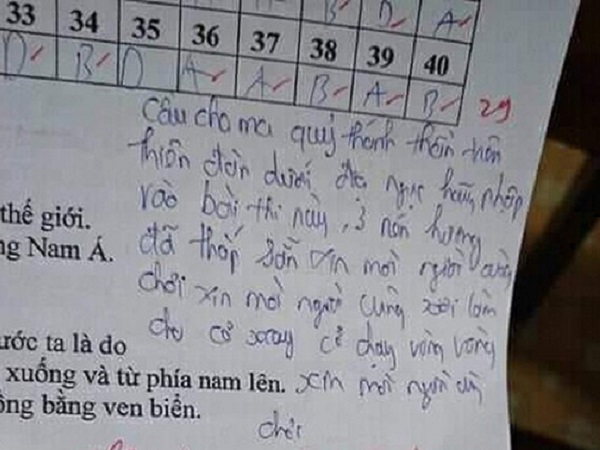 B D A
33 34 35 36 37 38 39 40
D B D A A B A B 29
Cầu cho ma quỷ thánh thần trên
thiên đàn dưới địa ngục hãy nhập
vào bài thi này, 3 nén hương
thế giới.
đã thắp sẵn xin mời người cùng
ng Nam Á.
chơi xin mời người cùng xơi làm
cho cơ xoay cơ chạy vòng vòng
ước ta là do
xuống và từ phía nam lên. xin mời người
ông bằng ven biển.
chơi